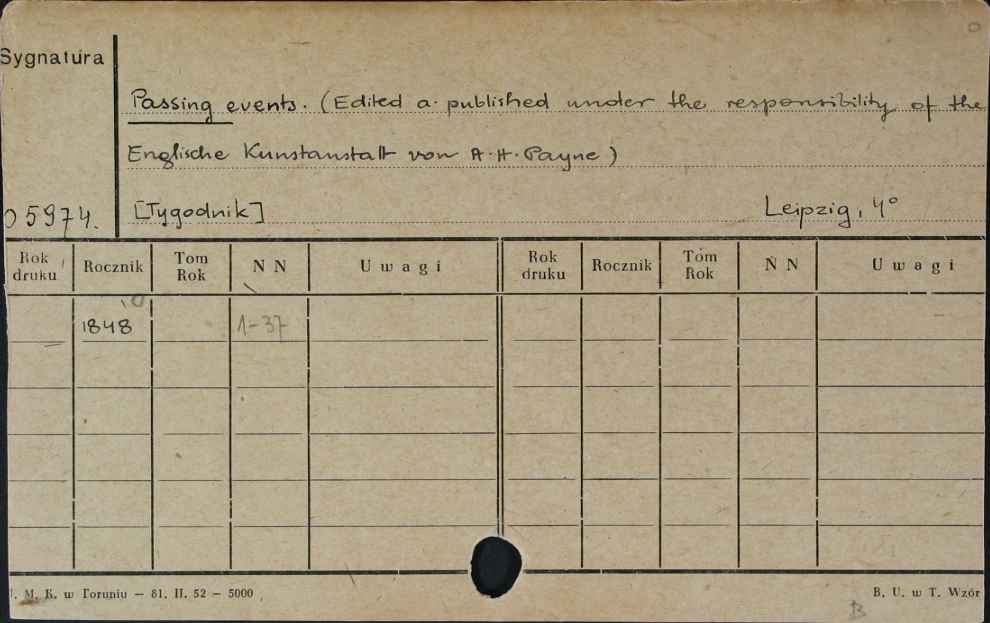 Sygnatura
Passing events. (Edited a. published under the responsibility of the
Englische Kunstanstalt von A.H. Payne)
05974.
[Tygodnik] Leipzig, 4°
Rok druku Rocznik Tom Rok N N Uwagi Rok druku Rocznik Tom Rok N N Uwagi
1848 1-37
U. M. K. w Toruniu — 81. II. 52 — 5000 B. U. w T. Wzór
B